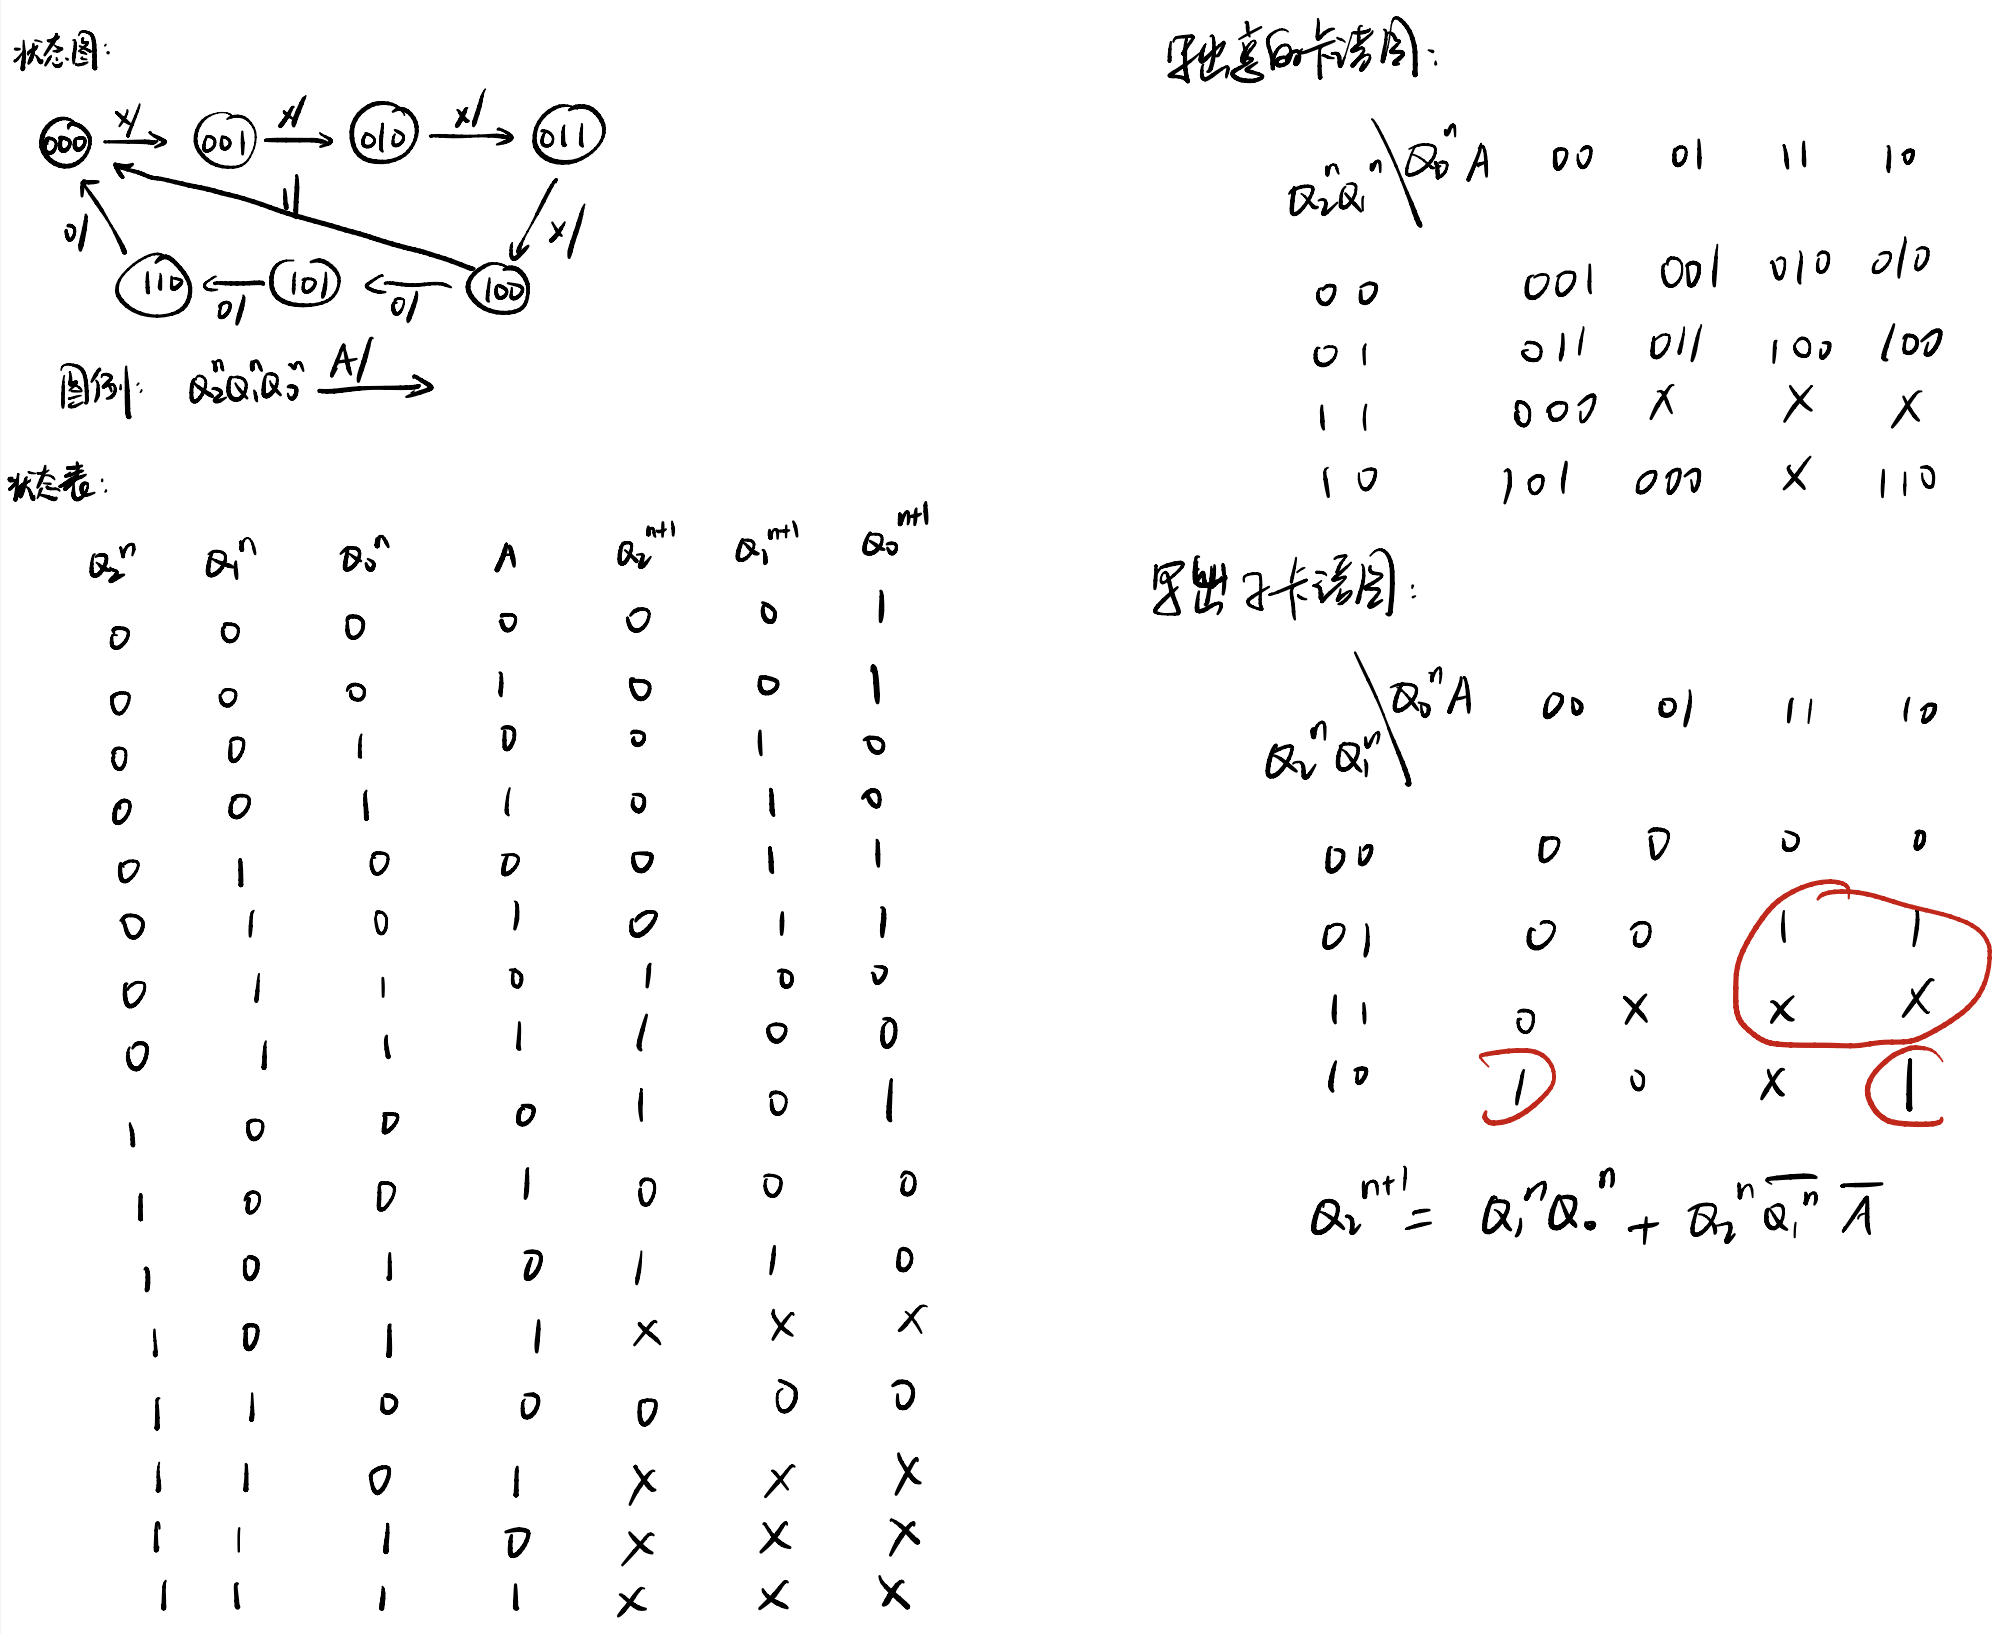 状态图:
000 x/ 001 x/ 010 x/ 011
1/
0/ x/
110 0/ 101 0/ 100
图例: Q₂ⁿQ₁ⁿQ₀ⁿ A/
状态表:
Q₂ⁿ Q₁ⁿ Q₀ⁿ A Q₂ⁿ⁺¹ Q₁ⁿ⁺¹ Q₀ⁿ⁺¹
0 0 0 0 0 0 1
0 0 0 1 0 0 1
0 0 1 0 0 1 0
0 0 1 1 0 1 0
0 1 0 0 0 1 1
0 1 0 1 0 1 1
0 1 1 0 1 0 0
0 1 1 1 1 0 0
1 0 0 0 1 0 1
1 0 0 1 0 0 0
1 0 1 0 1 1 0
1 0 1 1 x x x
1 1 0 0 0 0 0
1 1 0 1 x x x
1 1 1 0 x x x
1 1 1 1 x x x
写出总的卡诺图:
Q₂ⁿQ₁ⁿ \ Q₀ⁿA 00 01 11 10
00 001 001 010 010
01 011 011 100 100
11 000 x x x
10 101 000 x 110
写出子卡诺图:
Q₂ⁿQ₁ⁿ \ Q₀ⁿA 00 01 11 10
00 0 0 0 0
01 0 0 1 1
11 0 x x x
10 1 0 x 1
Q₂ⁿ⁺¹ = Q₁ⁿQ₀ⁿ + Q₂ⁿ Q̅₁ⁿ A̅